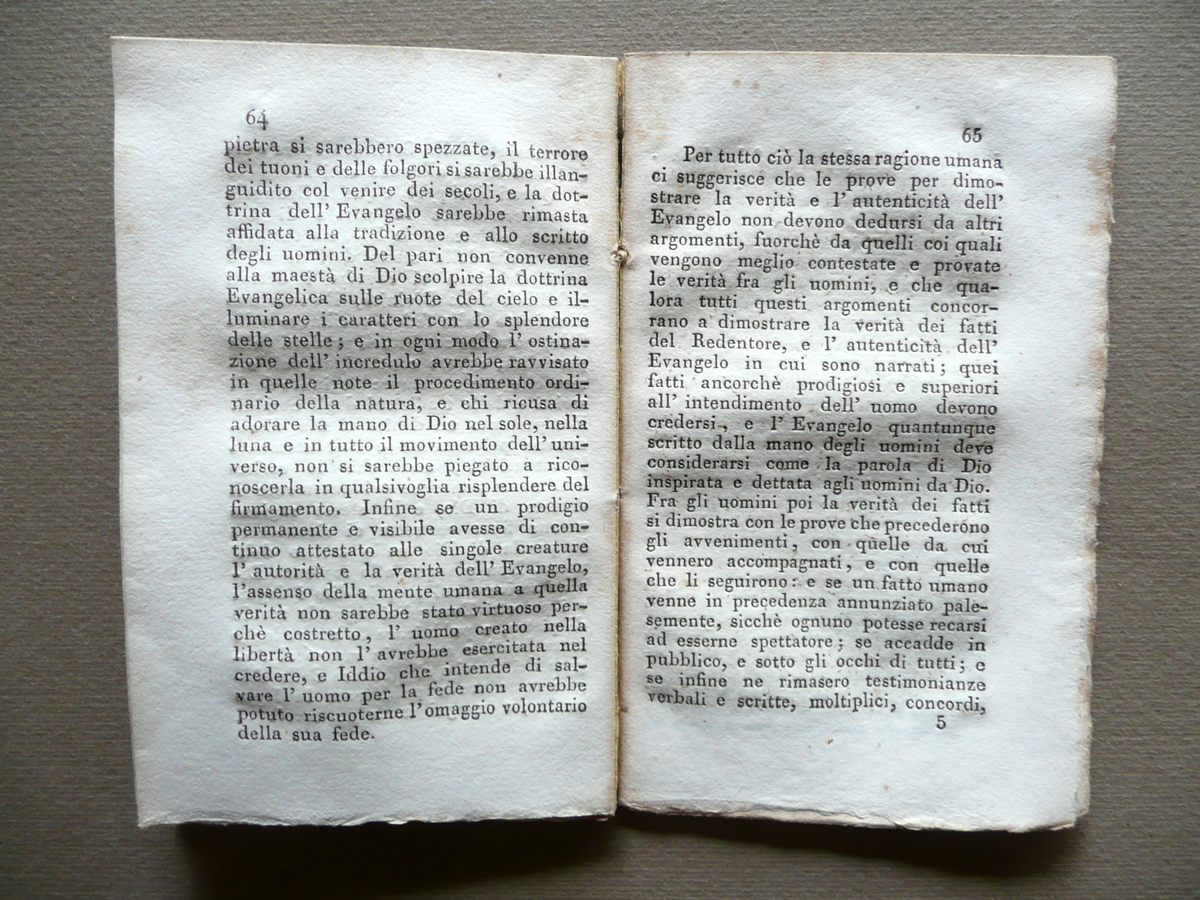 64
pietra si sarebbero spezzate, il terrore
dei tuoni e delle folgori si sarebbe illan-
guidito col venire dei secoli, e la dot-
trina dell' Evangelo sarebbe rimasta
affidata alla tradizione e allo scritto
degli uomini. Del pari non convenne
alla maestà di Dio scolpire la dottrina
Evangelica sulle ruote del cielo e il-
luminare i caratteri con lo splendore
delle stelle; e in ogni modo l' ostina-
zione dell' incredulo avrebbe ravvisato
in quelle note il procedimento ordi-
nario della natura, e chi ricusa di
adorare la mano di Dio nel sole, nella
luna e in tutto il movimento dell' uni-
verso, non si sarebbe piegato a rico-
noscerla in qualsivoglia risplendere del
firmamento. Infine se un prodigio
permanente e visibile avesse di con-
tinuo attestato alle singole creature
l' autorità e la verità dell' Evangelo,
l'assenso della mente umana a quella
verità non sarebbe stato virtuoso per-
chè costretto, l' uomo creato nella
libertà non l' avrebbe esercitata nel
credere, e Iddio che intende di sal-
vare l' uomo per la fede non avrebbe
potuto riscuoterne l'omaggio volontario
della sua fede.
65
Per tutto ciò la stessa ragione umana
ci suggerisce che le prove per dimo-
strare la verità e l' autenticità dell'
Evangelo non devono dedursi da altri
argomenti, fuorchè da quelli coi quali
vengono meglio contestate e provate
le verità fra gli uomini, e che qua-
lora tutti questi argomenti concor-
rano a dimostrare la verità dei fatti
del Redentore, e l' autenticità dell'
Evangelo in cui sono narrati; quei
fatti ancorchè prodigiosi e superiori
all' intendimento dell' uomo devono
credersi, e l' Evangelo quantunque
scritto dalla mano degli uomini deve
considerarsi come la parola di Dio
inspirata e dettata agli uomini da Dio.
Fra gli uomini poi la verità dei fatti
si dimostra con le prove che precederono
gli avvenimenti, con quelle da cui
vennero accompagnati, e con quelle
che li seguirono: e se un fatto umano
venne in precedenza annunziato pale-
semente, sicchè ognuno potesse recarsi
ad esserne spettatore; se accadde in
pubblico, e sotto gli occhi di tutti; e
se infine ne rimasero testimonianze
verbali e scritte, moltiplici, concordi,
5